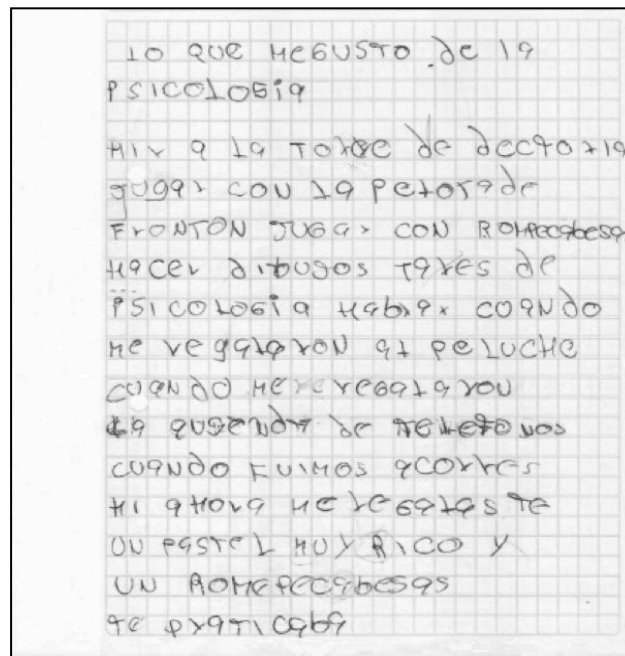 LO QUE ME GUSTO de la
PSICOLOGIA
MIR a la TORRE de dectoria
JUGAR CON la PELOTA de
FRONTON JUGAR CON ROMPECabesa
HACER dibugos TARES de
PSICOLOGIA Hablar CUANDO
Me regalaron al PELUCHE
CUANDO Me regalaron
la agenda de TELEFONOS
CUANDO FUIMOS a CORRES
MI AHORA ME REGALASTE
UN PASTEL MUY RICO Y
UN ROMEPECABESAS
Te PRATICABA